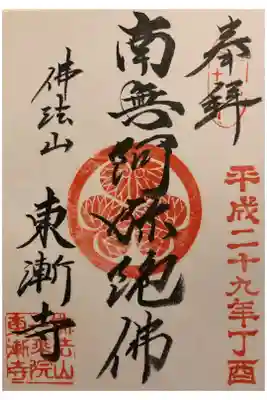 奉拝
平成二十九年丁酉
南無阿弥陀佛
佛法山
東漸寺
佛法山
一乘院
東漸寺